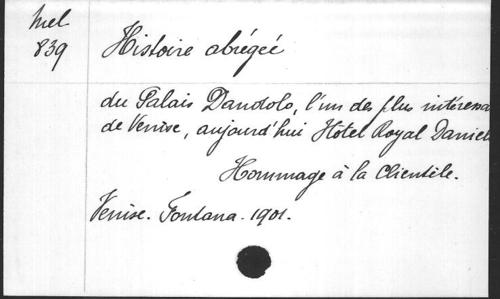 Mel
839
Histoire abrégée
du Palais Dandolo, l'un des plus intéressa
de Venise, aujourd'hui Hôtel Royal Daniel
Hommage à la Clientèle.
Venise. Fontana. 1901.